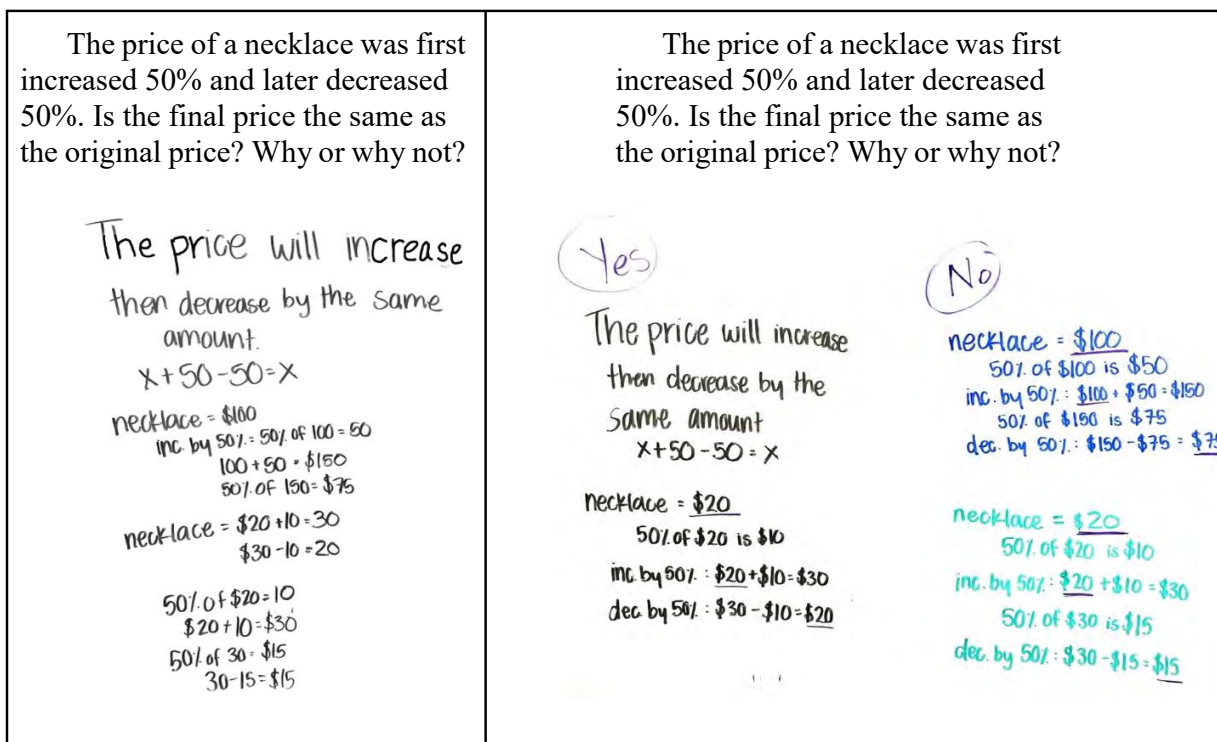 The price of a necklace was first
increased 50% and later decreased
50%. Is the final price the same as
the original price? Why or why not?
The price will increase
then decrease by the same
amount.
x+50-50=x
necklace = $100
inc. by 50% = 50% of 100 = 50
100+50 = $150
50% of 150 = $75
necklace = $20+10=30
$30-10=20
50% of $20=10
$20+10=$30
50% of 30 = $15
30-15=$15
The price of a necklace was first
increased 50% and later decreased
50%. Is the final price the same as
the original price? Why or why not?
Yes
The price will increase
then decrease by the
same amount
x+50-50=x
necklace = $20
50% of $20 is $10
inc. by 50% : $20+$10=$30
dec. by 50% : $30-$10=$20
No
necklace = $100
50% of $100 is $50
inc. by 50% : $100 + $50 = $150
50% of $150 is $75
dec. by 50% : $150-$75 = $75
necklace = $20
50% of $20 is $10
inc. by 50% : $20 +$10 = $30
50% of $30 is $15
dec. by 50% : $30-$15=$15